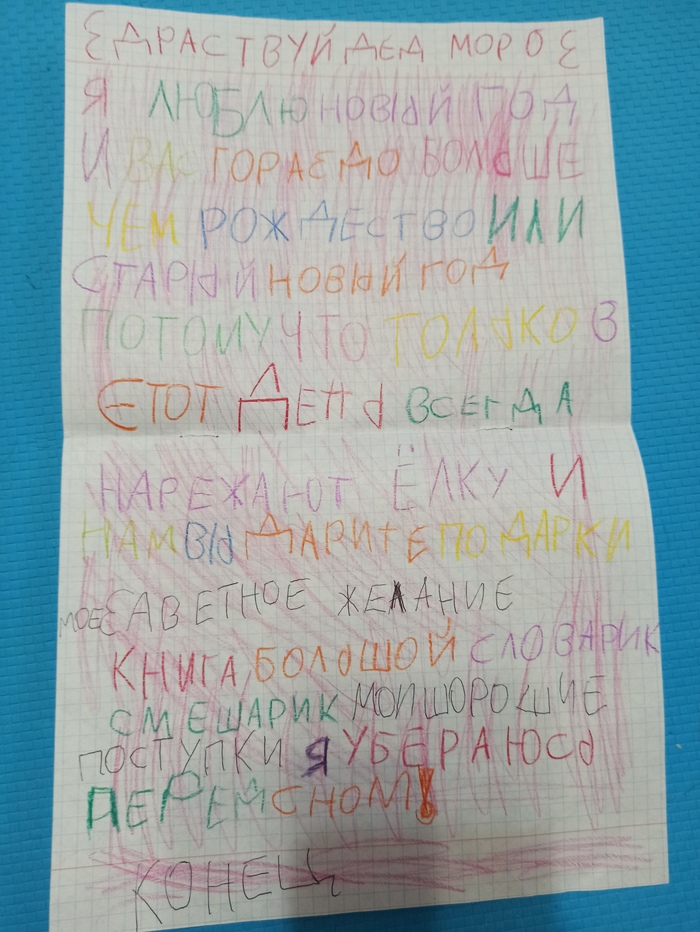 ЗДРАСТВУЙ ДЕД МОРОЗ
Я ЛЮБЛЮ НОВЫЙ ГОД
И ВАС ГОРАЗДО БОЛЬШЕ
ЧЕМ РОЖДЕСТВО ИЛИ
СТАРЫЙ НОВЫЙ ГОД
ПОТОМУ ЧТО ТОЛЬКО В
ЕТОТ ДЕНЬ ВСЕГДА
НАРЕЖАЮТ ЁЛКУ И
НАМ ВЫ ДАРИТЕ ПОДАРКИ
МОЕ ЗАВЕТНОЕ ЖЕЛАНИЕ
КНИГА, БОЛЬШОЙ СЛОВАРИК
СМЕШАРИК МОИ ШОРОШИЕ
ПОСТУПКИ Я УБЕРАЮСЬ
ПЕРЕМ СНОМ!
КОНЕЦ